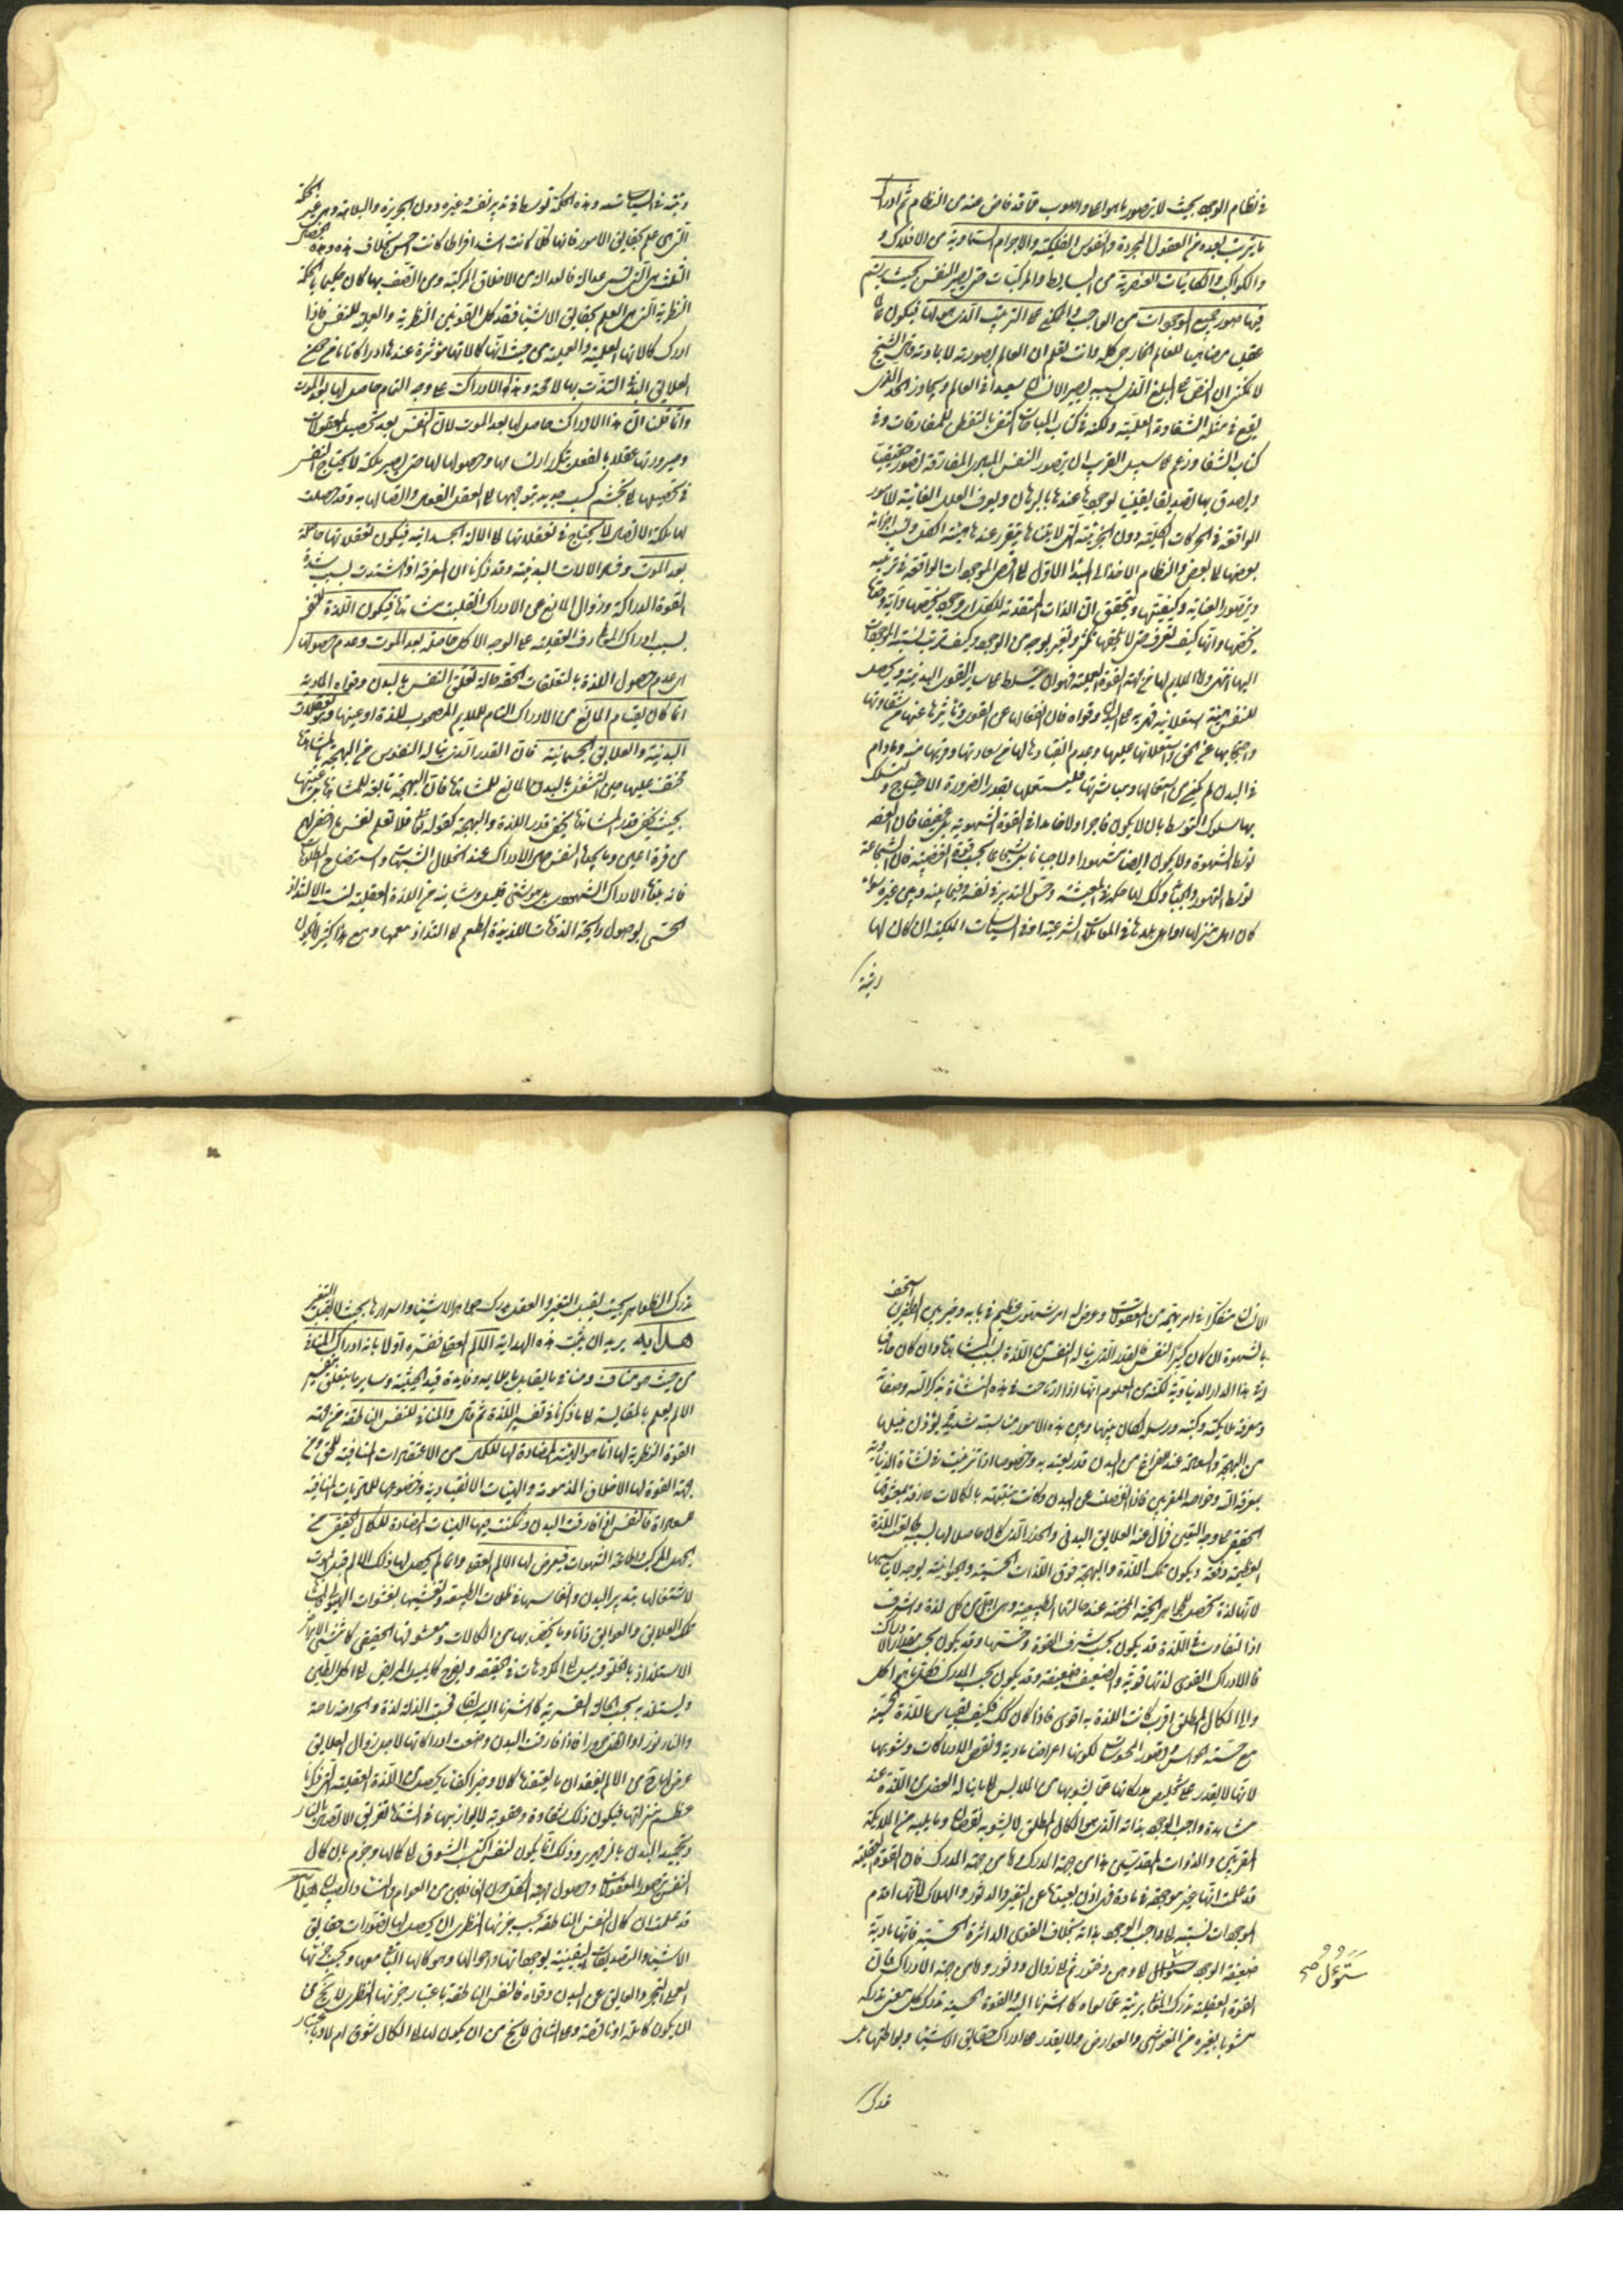 في نظام الوجود بحيث لا يتصور ما هو اعلى واصوب مما قد فاض عنه من النظام ثم ادراك
ما يترتب بعده من العقول المجردة والنفوس الفلكية والاجرام السماوية من الافلاك و
والكواكب والكائنات العنصرية من البسايط والمركبات حتى يصير النفس بحيث يرتسم
فيها صور جميع الموجودات من الواجب والممكن على الترتيب الذي هو لها فيكون عالما
عقليا مضاهيا للعالم الخارجي كله وانت تعلم ان العالم بصورته لا بمادته وقال الشيخ
لا يمكنني ان انص على المبلغ الذي بسببه يصير الانسان سعيدا في العالم ويجاوز الحد الذي
يقع في مثله الشقاوة العلمية ولكنه في كتاب المباحثات اكتفى بالتفطن للمفارقات وفي
كتاب الشفا وزعم على سبيل التقريب ان يتصور النفس المبادي المفارقة تصورا حقيقيا
ويصدق بها تصديقا يقينيا لوجودها عندها بالبرهان ويعرف العلل الغائية للامور
الواقعة في الحركات الكلية دون الجزئية التي لا يتناهى ويتقرر عندها هيئة الكل ونسب اجزائه
بعضها الى بعض والنظام الاخذ من المبدأ الاول الى اقصى الموجودات الواقعة في ترتيبه
ويتصور العناية وكيفيتها ويتحقق ان الذات المتقدمة للكل اي وجود يخصها واية وحدة
يخصها وانها كيف تعرف حتى لا يلحقها تكثر وتغير بوجه من الوجوه وكيف ترتيب نسبة الموجودات
اليها انتهى واما الملايم لها من جهة القوة العملية فهو ان يتسلط على ساير القوى البدنية ويحصل
للنفس هيئة استعلائية قهرية على البدن وقواه فان انفعالها عن القوى وتاثرها عنها من شقاوتها
واحتجابها عن الحق واستعلائها عليها وعدم انقيادها لها من سعادتها وقربها منه وما دام
في البدن لم يمكن من استعمالها ومباشرتها فليستعملها بقدر الضرورة والاحتياج وتسلك
بها سلوك التوسط بان لا يكون فاجرا ولا خامدا في القوة الشهوية بل عفيفا فان العفة
توسط الشهوة ولا يكون ايضا متهورا ولا جبانا بل شجاعا بحسب قوة الغضبية فان الشجاعة
توسط التهور والجبن وكذلك لها حكمة في المعيشة وحسن التدبير في نفسه وفيما بينه وبين غيره سواء
كان اهل منزلها او اهل بلدها في المعاملات الشرعية او في السياسات الملكية ان كان لها
رتبة
رتبة في السياسة وهذه الحكمة توسط في تدبير نفسه وغيره دون الجربزة والبلاهة وهي غير الحكمة
التي هي علم بحقايق الامور فانها كلما كانت اشد افراطا كانت احسن بخلاف هذه وهذه الخصال
الثلث هي التي تسمى عدالة فالعدالة من الاخلاق المركبة ومن اتصف بها كان حكيما بالحكمة
النظرية التي هي العلم بحقايق الاشيا فقد كمل القوتين النظرية والعملية للنفس فاذا
ادرك كمالاتها العلمية والعملية من حيث انها كمالاتها مؤثرة عندها ادراكا تاما من غير
العلايق البدنية التذت بها لا محالة وهذه الادراكات على وجه التمام حاصل لها بعد الموت
وانما قلنا ان هذا الادراك حاصل لها بعد الموت لان النفس بعد تحصيل المعقولات
وصيرورتها عقلا بالفعل بتكرار ارتسامها وحصولها لها حتى يصير ملكة لا يحتاج النفس
في تحصيلها الى تجشم كسب جديد بتوجهها الى العقل الفعال واتصالها به وقد حصلت
لها ملكة الاتصال لا يحتاج في تعقلاتها الى الالة الجسدانية فيكون تعقلاتها حاصلة
بعد الموت وفساد الالات البدنية وقد ذكرنا ان المعرفة اذا اشتدت بسبب شدة
القوة الدراكة وزوال المانع عن الادراك انقلبت مشاهدة فيكون اللذة للنفس
بسبب ادراك المعارف العقلية على الوجه الاكمل حاصلة بعد الموت وعدم حصولها
اي عدم حصول اللذة بالتعقلات الحقة حالة تعلق النفس بالبدن وقواه المادية
انما كان لقيام المانع من الادراك التام للملايم المصحوب للذة او عينها وهو التعلقات
البدنية والعلايق الجسمانية فان القدر الذي يناله النفوس من البهجة بالمشاهدة
مخفف عليها حين اشتغل بالبدن المانع للمشاهدة فان البهجة تابعة للمشاهدة بل عينها
بحيث يخفى قدر المشاهدة يخفى قدر اللذة والبهجة كقوله تعالى فلا تعلم نفس ما اخفي لهم
من قرة اعين وما يجدها النفس من الادراك عند انحلال الشبهات واستيضاح المطلوبات
الحسي بوصول رايحة المذوقات اللذيذة الطعم الى التذاذ معها ومع هذا كثيرا ما يكون
الانسان متفكرا في امر يهمه من المعقولات وعرض له امر شهوي عظيم في بابه وخير بين الطرفين استخف
بالشهوة ان كان كبير النفس فالقدر الذي يناله النفس من اللذة بسبب المشاهدة وان كان خافيا
في هذا الدار الدنياوية لكنه من المعلوم انها اذا ارتاضت في هذه النشأة بذكر الله وصفاته
ومعرفة ملايكته وكتبه ورسله لكان بينها وبين هذه الامور مناسبة شديدة يؤذن بنيلها
من البهجة والسعادة عند الفراغ من البدن قدر يعتد به وخصوصا اذا تزينت في نشأة الدنياوية
بمعرفة الله وخواصه المقربين فاذا انفصلت عن البدن وكانت متنبهة بالكمالات عارفة بمعشوقها
الحقيقي على وجه اليقين فزال عنه العلايق البدني والخدر الذي كان حاصلا لها بسببه طالعت اللذة
العظيمة دفعة ويكون تلك اللذة والبهجة فوق اللذات الحسية والحيوانية بوجه لا يناسبها
اذ التفاوت في اللذة قد يكون بحسب شرف القوة وخستها وقد يكون بحسب مقدار الادراكات
فالادراك القوي لذتها قوية والضعيف ضعيفة وقد يكون بحسب المدرك فكلما هو اكمل
والى الكمال المطلق اقرب كانت اللذة به اقوى فاذا كان كذلك فكيف يقاس باللذة الحسية
مع خسة الحواس وقصور المحسوسات لكونها اعراض مادية ونقص الادراكات وشوبها
لانها لا يقدر على تخليص مدركاتها عما يشوبها من الملابس الى ما يناله العقل من اللذة عند
مشاهدة واجب الوجود بذاته الذي هو الكمال المطلق لا يشوبه نقص وما يليه من الملايكة
المقربين والذوات المقدسين هذا من جهة المدرك واما من جهة المدرك فان القوة العقلية
قد علمت انها غير موجودة في مادة فهي اذن بعيدة عن التغير والدثور والهلاك لانها اقدم
الموجودات نسبة الى واجب الوجود بذاته بخلاف القوى الداثرة الحسية فانها مادية
القوة العقلية تدرك
مشوبا بغيره من الغواشي والعوارض ولا يقدر على ادراك حقايق الاشياء وبواطنها بل
تدرك
تدرك الظواهر بحيث يقبل التغير والعقل يدرك جواهر الاشياء واسرارها بحيث لا يقبل التغير
هداية يريد ان يثبت هذه الهداية الالم العقلي ففسره اولا بانه ادراك المنافي
من حيث هو مناف ومنافي ما يقابل ما يلايمه وفايدة قيد الحيثية وساير ما يتعلق بتفسير
الالم يعلم بالمقايسة الى ما ذكرناه في تفسير اللذة ثم قال والمنافي للنفس الناطقة من جهة
القوة النظرية لها انما هو الهيئة المضادة لها للكمال من الاعتقادات المنافية للحق ومن
جهة القوة لها الاخلاق المذمومة والهيئات الانقيادية وخضوعها للجزئيات المنافية
فالنفس اذا فارقت البدن وتمكنت فيها الهيئات المضادة للكمال الحقيقي من
الجهل المركب واطاعة الشهوات فيعرض لها الالم العقلي وانما لم يحصل لها ذلك الالم قبل الموت
لاشتغالها بتدبير البدن وانغماسها في ظلمات الطبيعة وتغشيها بغشوات الهيولى
الاستلذاذ بالحلو ويميل الى المكروهات في الحقيقة ويفرح كما يميل المريض الى اكل الطين
ويستلذ به بحسب الحالة القسرية كما اشرنا اليه سابقا فيحسب الذلة لذة والجراحة راحة
والنار نورا والظلمة سرورا فاذا فارقت البدن وضعت ادراكاتها لاجل زوال العلايق
وتجميد البدن بالزمهرير وذلك انما يكون لنفس اكتسب الشوق الى كمالها وجزم بان كمال
قد علمت ان كمال النفس الناطقة بحسب جزئها النظري ان يحصل لها تصورات حقايق
الاشياء والتصديقات اليقينية بوجوداتها واحوالها وهو كمالها الباقي معها وبحسب جزئها
العملي التجرد والتعالي عن البدن وقواه فالنفس الناطقة باعتبار جزئها النظري لا يخ من
ان يكون كاملة او ناقصة وعلى الثاني لا يخ من ان يكون لها الى الكمال شوق ام لا